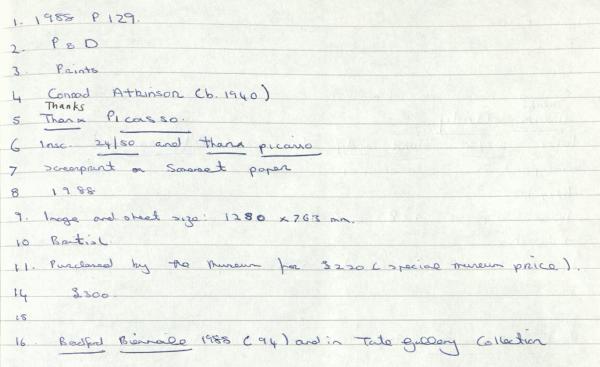 1. 1988 P 129.
2. P & D
3 Prints
4 Conrad Atkinson (b. 1940)
Thanks
5 Thanx Picasso.
6 Insc. 24/50 and thanx picasso
7 Screenprint on Somerset paper
8 1988
9. Image and sheet size: 1280 x 763 mm.
10 British
11. Purchased by the Museum for £220 (special museum price).
14 £300.
15
16. Bradford Biennale 1988 (94) and in Tate Gallery Collection